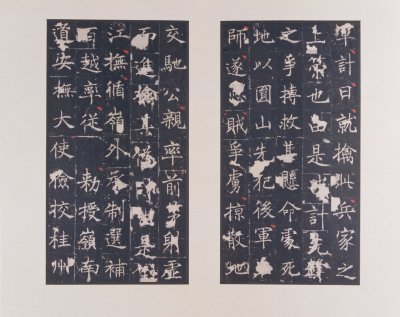 計日就擒此兵家之
上策也由是計
之爭搏救其懸命處死
地以圓山先犯後軍
師遂恣賊爭虜掠散地
交馳公親率前射虛
而進擒其從是
江撫循嶺外承制選補
百越率從 勅授嶺南
道安撫大使檢校桂州